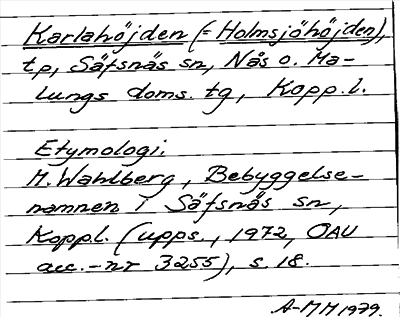 Karlahöjden (= Holmsjöhöjden),
tp, Säfsnäs sn, Nås o. Ma-
lungs doms. tg, Kopp. l.
Etymologi:
M. Wahlberg, Bebyggelse-
namnen i Säfsnäs sn,
Koppl. (upps., 1972, OAU
acc.-nr 3255), s. 18.
A-MM 1979.